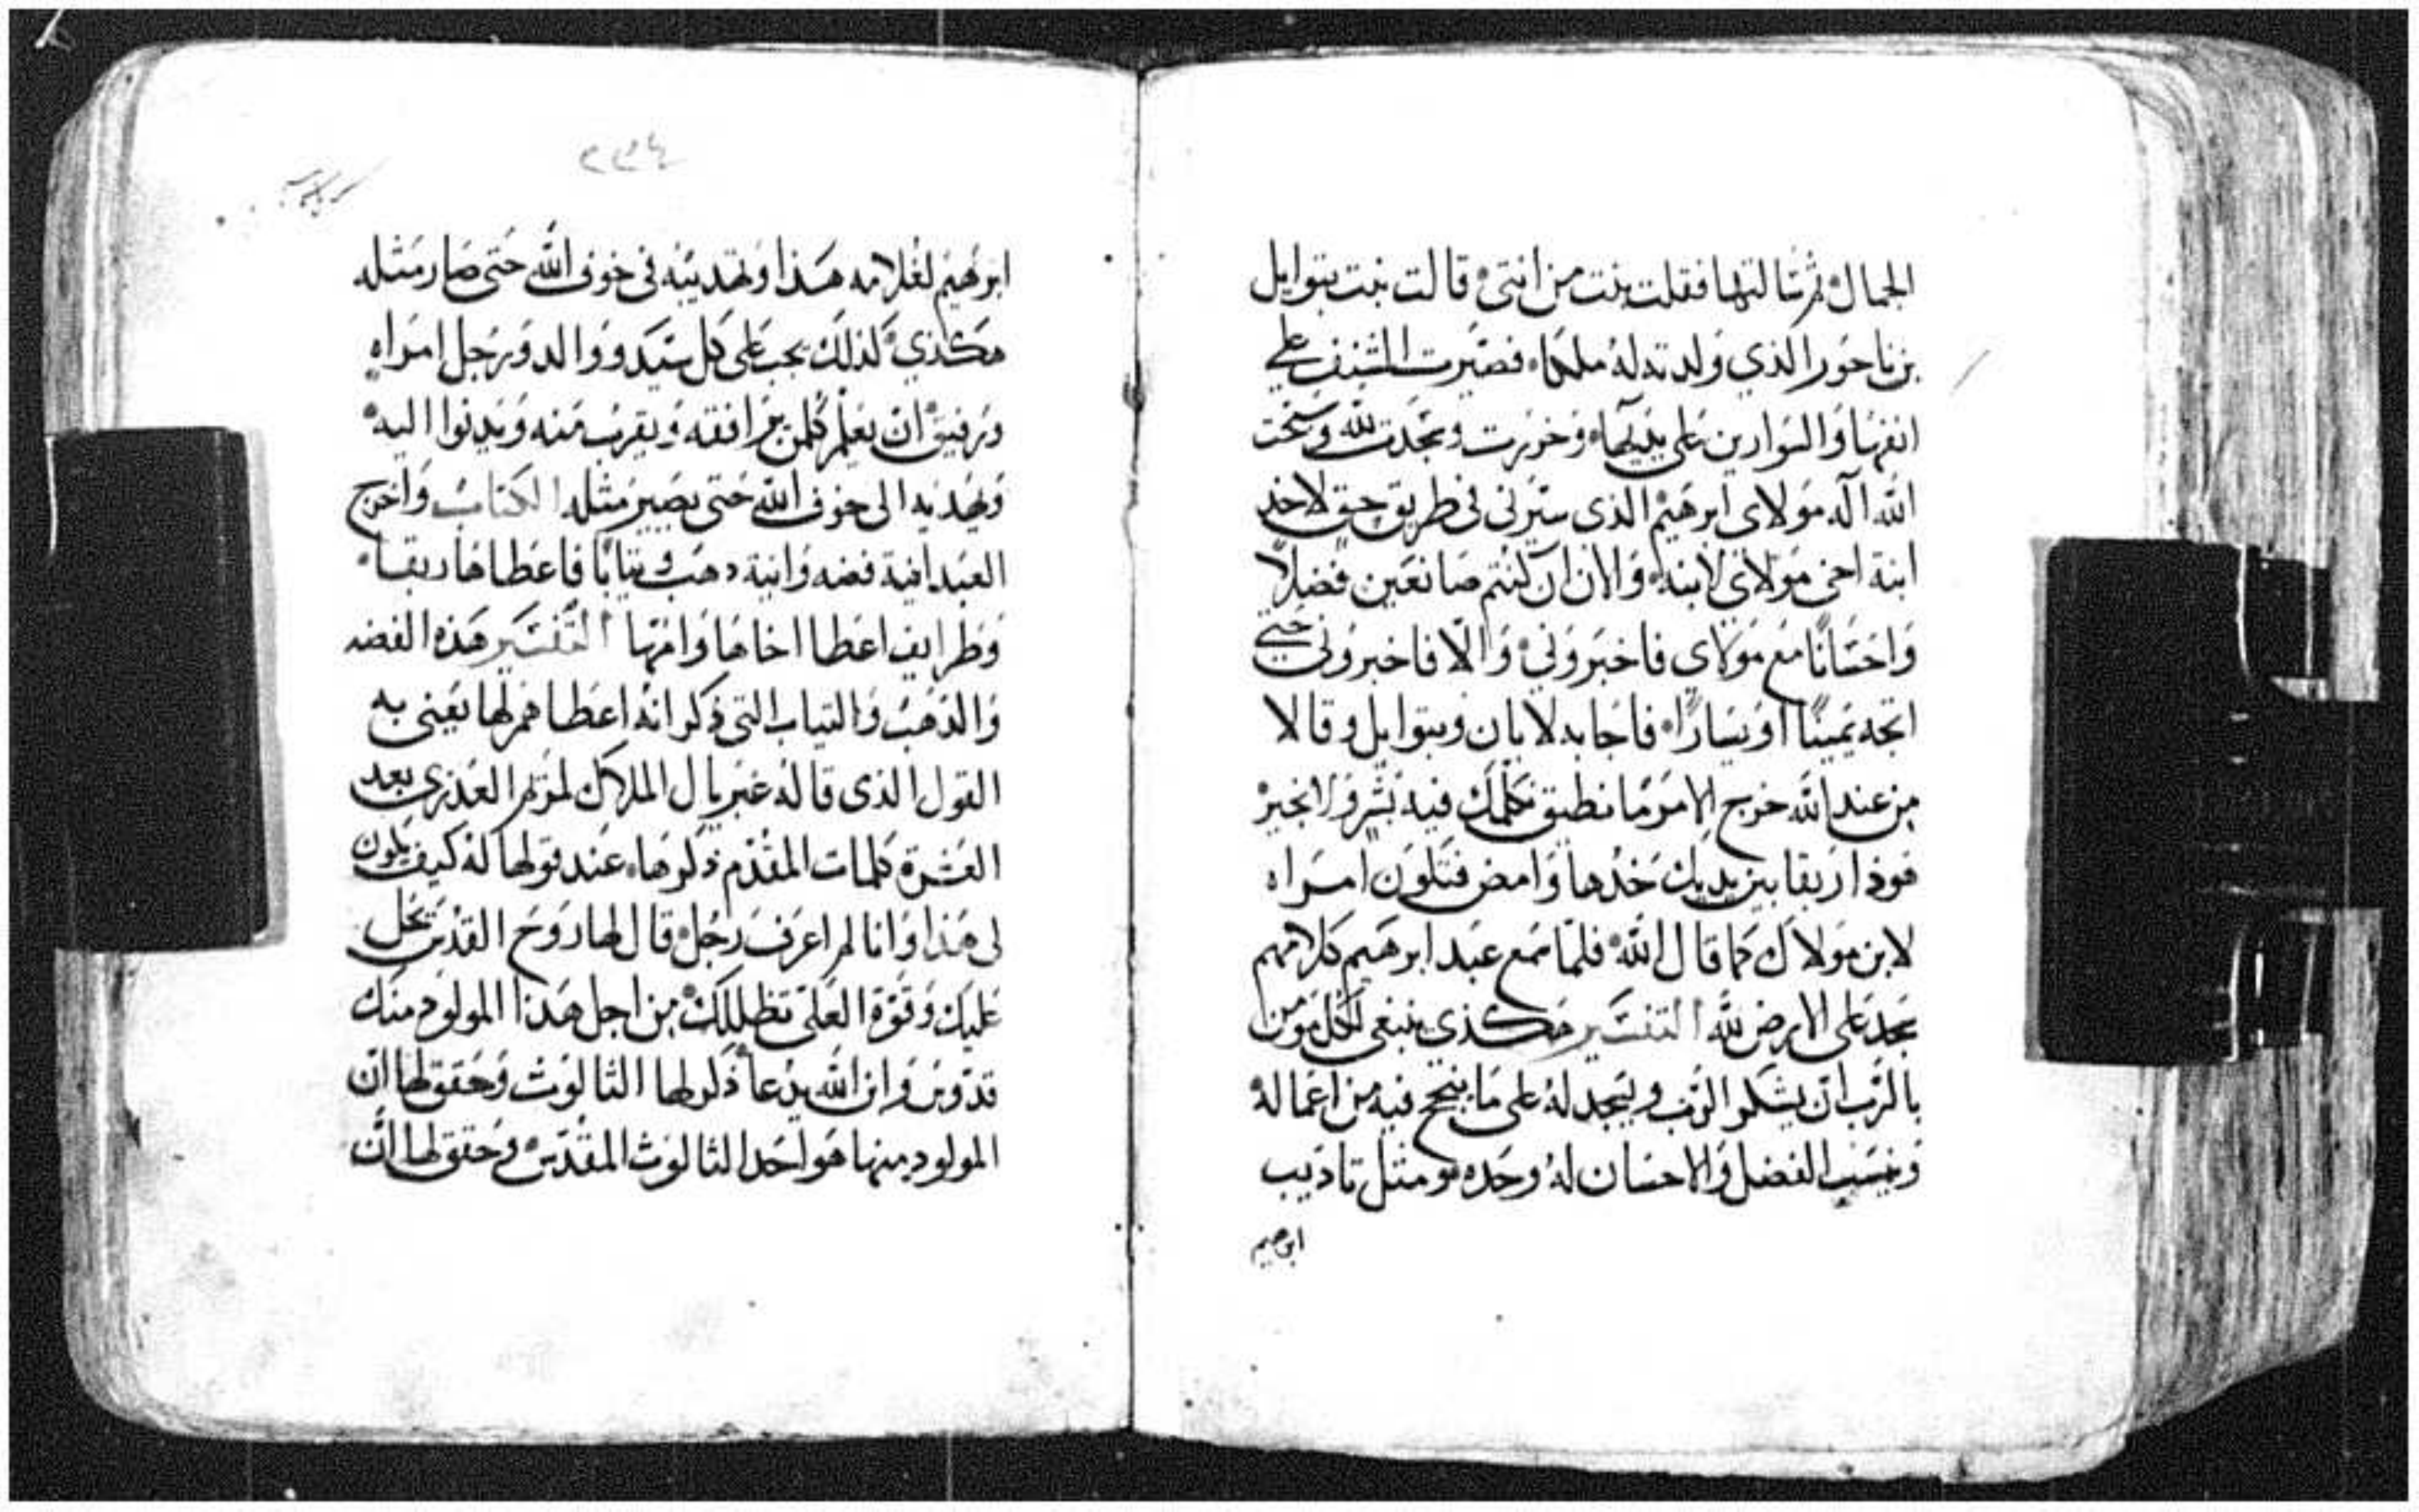 الجمال ثم سالتها فقلت بنت من انتى قالت بنت بتوايل
بن ناحور الذي ولدته له ملكا فصيرت الشنف على
انفها والسوارين على يديها وخررت وسجدت لله وسبحت
الله اله مولاى ابرهيم الذى سيرنى فى طريق حق لاخذ
ابنة اخى مولاى لابنه والان ان كنتم صانعين فضلا
واحسانا مع مولاى فاخبرونى والا فاخبرونى حتى
اتجه يمينا او يسارا فاجابه لابان وبتوايل وقالا
من عند الله خرج الامر ما نطيق نكلمك فيه بشر ولا بخير
هوذا ربقا بين يديك خذها وامض فتكون امراه
لابن مولاك كما قال الله فلما سمع عبد ابرهيم كلامهم
سجد على الارض لله التفسير هكذى ينبغى لكل مومن
بالرب ان يشكر الرب ويسجد له على ما ينجح فيه من اعماله
وينسب الفضل والاحسان له وحده هو مثل تاديب
ابرهيم
٢٣٤
ابرهيم لغلامه هذا وتهديبه فى خوف الله حتى صار مثله
هكذي كذلك يجب على كل سيد ووالد ورجل امراه
ورفيق ان يعلم كلمن يرافقه ويقرب منه ويدنوا اليه
ويهديه الى خوف الله حتى يصير مثله الكتاب واخرج
العبد انية فضه وانية دهب وثيابا فاعطاها ربقا
وظرايف اعطا اخاها وامها التفسير هذه الفضه
والدهب والثياب التى ذكر انه اعطاهم لها يعنى به
القول الذى قاله غبريال الملاك لمرتمريم العذرى بعد
العشرة كلمات المقدم ذكرها عند قولها له كيف يكون
لى هذا وانا لم اعرف رجل قال لها روح القدس تحل
عليك وقوة العلى تظللك من اجل هذا المولود منك
قدوس وابن الله يدعا ذكر لها الثالوث وحقق لها ان
المولود منها هو احد الثالوث المقدس وحقق لها ان